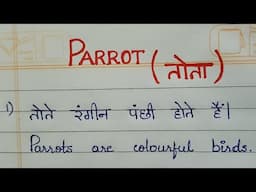 PARROT (तोता)
1) तोते रंगीन पंछी होते हैं।
Parrots are colourful birds.